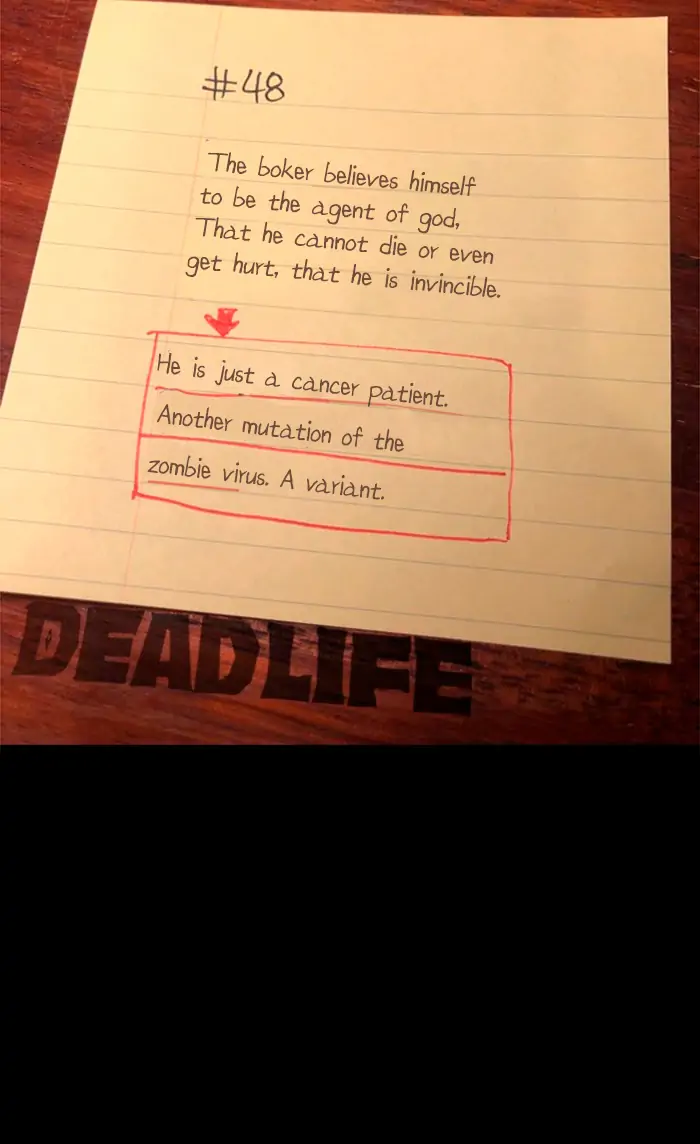 #48
The boker believes himself
to be the agent of god,
That he cannot die or even
get hurt, that he is invincible.
He is just a cancer patient.
Another mutation of the
zombie virus. A variant.
DEADLIFE